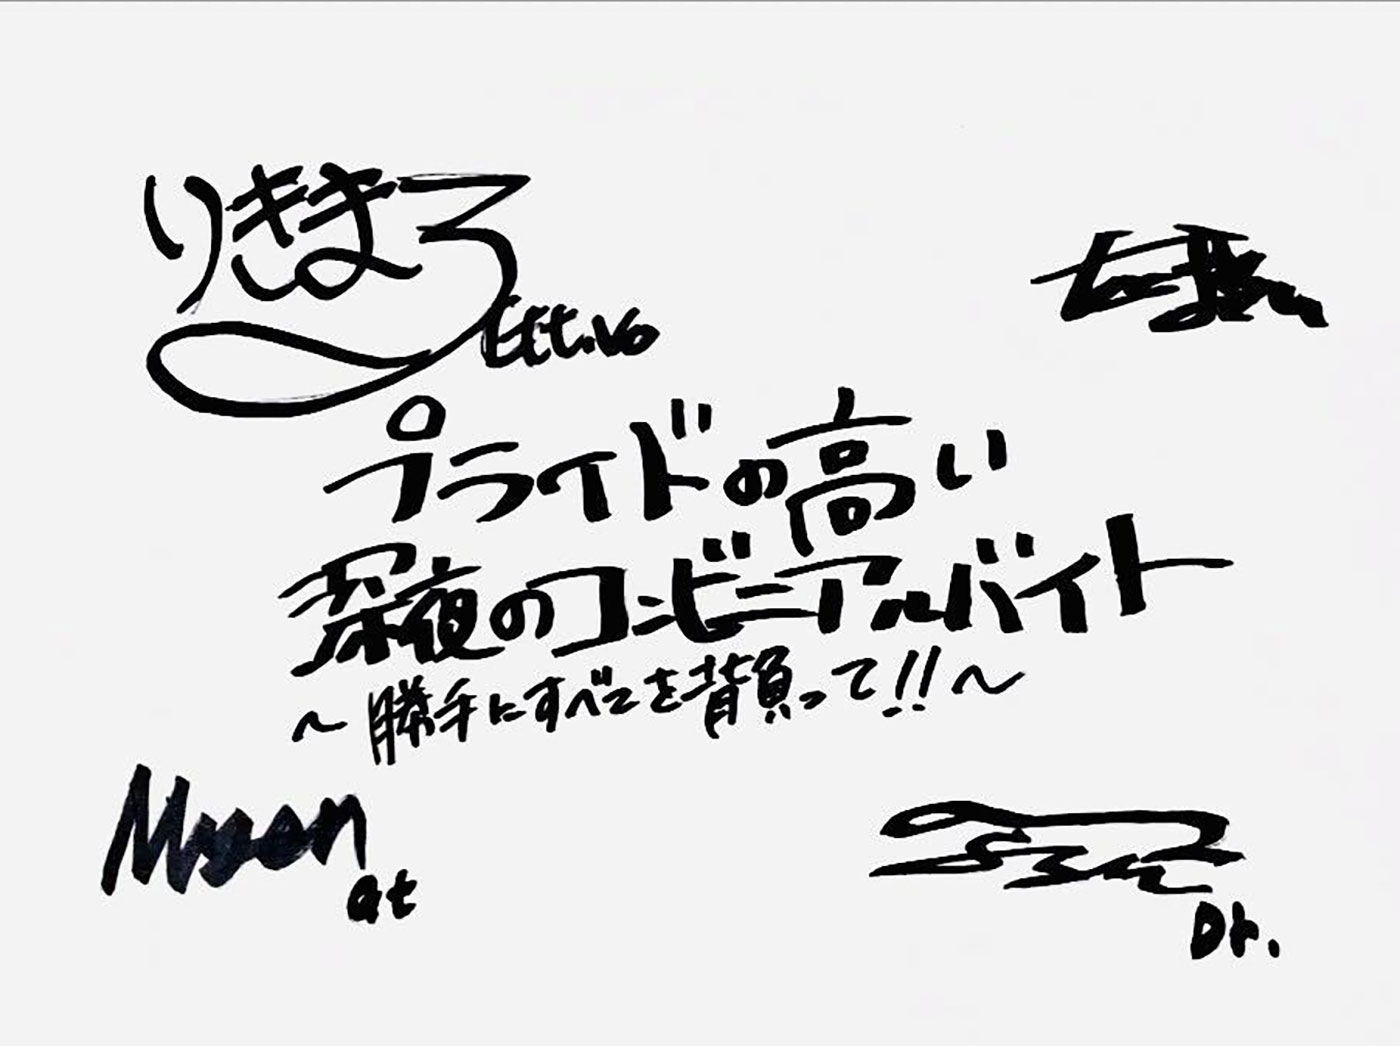 りきまろ
Gt.Vo
プライドの高い
深夜のコンビニアルバイト
～勝手にすべてを背負って!!～
Gt
Dr.